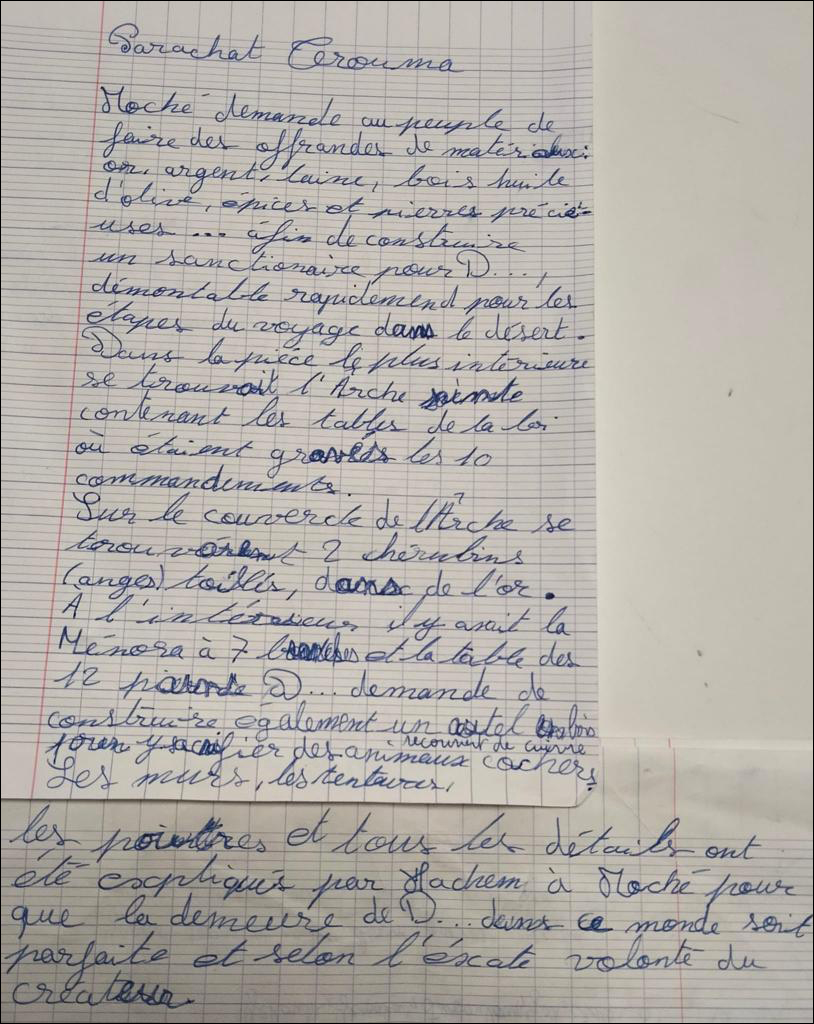 Parachat Terouma
Moché demande au peuple de
faire des offrandes de matériaux:
or, argent, laine, bois huile
d'olive, épices et pierres précie-
uses ... àfin de construire
un sanctionaire pour D...,
démontable rapidemend pour les
étapes du voyage dans le désert.
Dans la pièce le plus intérieure
se trouvait l'Arche sainte
contenant les tables de la loi
où étaient gravés les 10
commandements.
Sur le couvercle de l'Arche se
trouvaient 2 chérubins
(anges) taillés, dans de l'or.
À l'intérieur il y avait la
Ménora à 7 branches et la table des
12 pains D... demande de
construire également un autel en bois
recouvert de cuivre
pour y sacrifier des animaux cachers
Les murs, les tentures,
les poutres et tous les détails ont
été expliqués par Hachem à Moché pour
que la demeure de D... dans ce monde soit
parfaite et selon l'éxcate volonté du
créateur.